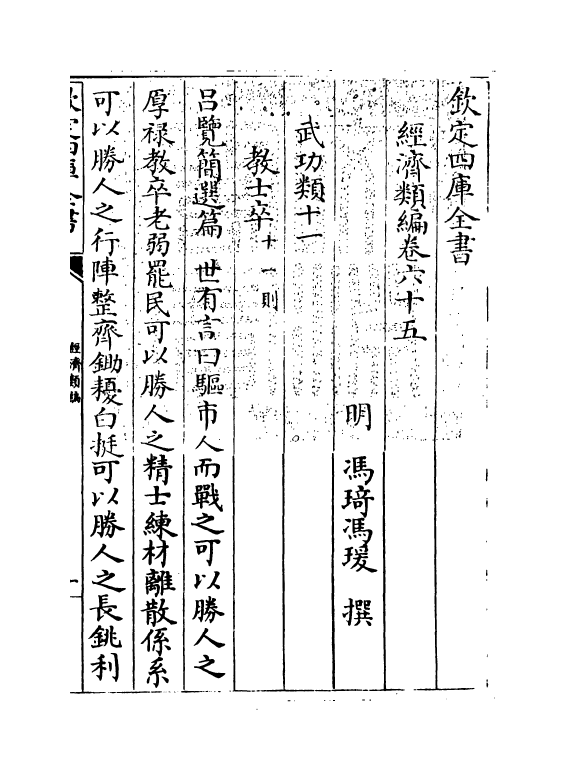 欽定四庫全書
經濟類編卷六十五
明 馮琦馮瑗 撰
武功類十一
教士卒十一則
呂覽簡選篇 世有言曰驅市人而戰之可以勝人之
厚祿教卒老弱罷民可以勝人之精士練材離散係系
可以勝人之行陣整齊鋤耰白挺可以勝人之長銚利
欽定四庫全書
經濟類編
一